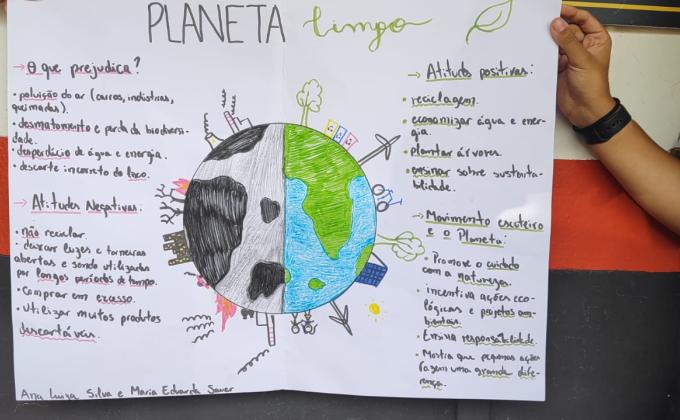 PLANETA limpo
→ O que prejudica?
• poluição do ar (carros, indústrias,
queimadas).
• desmatamento e perda da biodiversi-
dade.
• desperdício de água e energia.
• descarte incorreto do lixo.
→ Atitudes Negativas:
• não reciclar.
• deixar luzes e torneiras
abertas e sendo utilizadas
por longos períodos de tempo.
• Comprar em excesso.
• Utilizar muitos produtos
descartáveis.
Ana Luiza Silva e Maria Eduarda Sauer
→ Atitudes positivas:
• reciclagem.
• economizar água e ener-
gia.
• plantar árvores.
• ensinar sobre sustenta-
bilidade.
→ Movimento escoteiro
e o Planeta:
• Promove o cuidado
com a natureza.
• incentiva ações eco-
lógicas e projetos am-
bientais.
• Ensina responsabilidade.
• Mostra que pequenas ações
fazem uma grande dife-
rença.